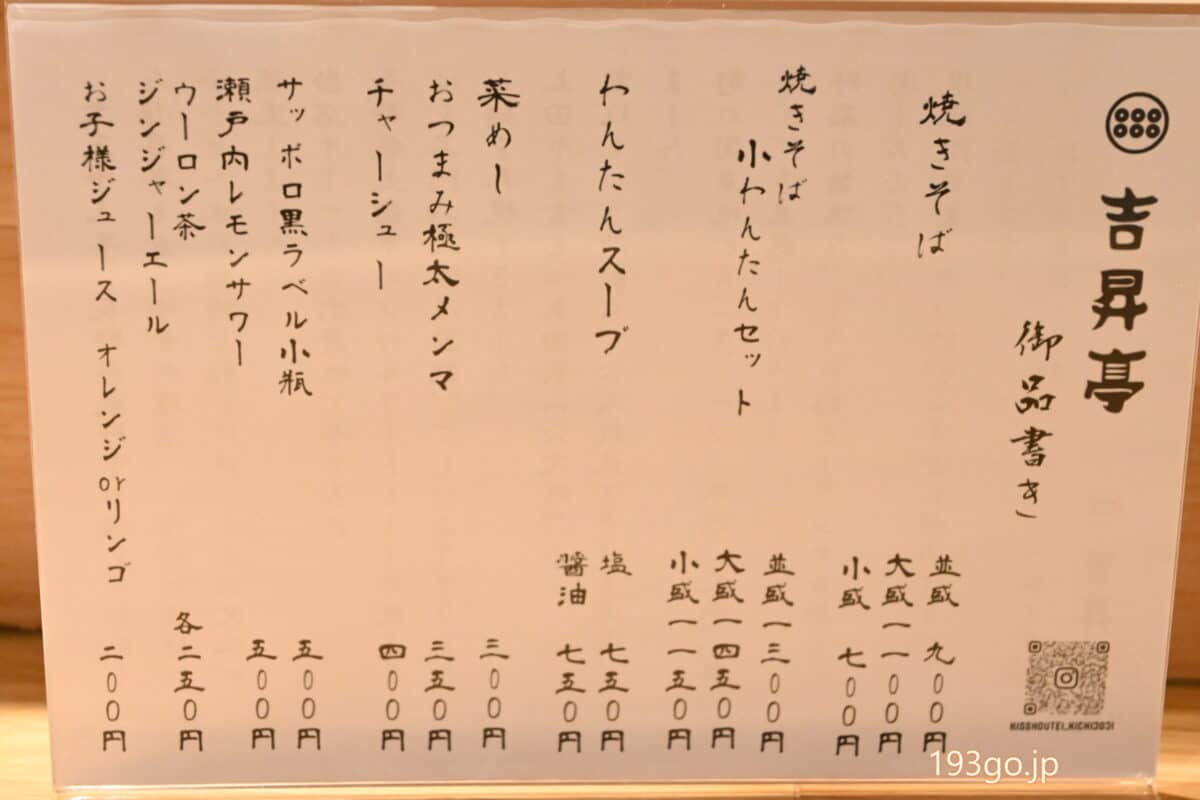 吉昇亭
御品書き
焼きそば
並盛 九〇〇円
大盛一一〇〇円
小盛 七〇〇円
焼きそば
小わんたんセット
並盛一三〇〇円
大盛一四五〇円
小盛一一五〇円
わんたんスープ
塩 七五〇円
醤油 七五〇円
菜めし 三〇〇円
おつまみ極太メンマ 三五〇円
チャーシュー 四〇〇円
サッポロ黒ラベル小瓶 五〇〇円
瀬戸内レモンサワー 五〇〇円
ウーロン茶
ジンジャーエール
各二五〇円
お子様ジュース オレンジorリンゴ 二〇〇円
KISSHOUTEI.KICHIJOJI
193go.jp